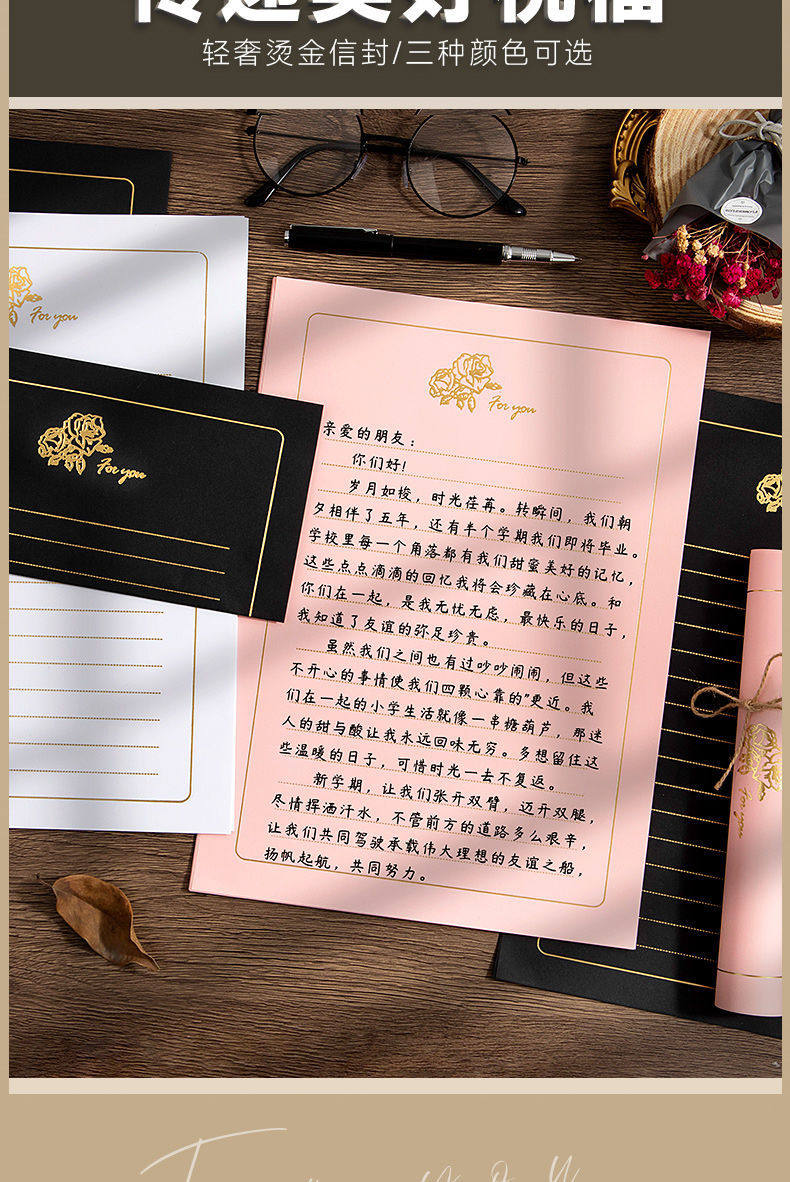 传递美好祝福
轻奢烫金信封/三种颜色可选
For you
For you
For you
亲爱的朋友：
你们好！
岁月如梭，时光荏苒。转瞬间，我们朝
夕相伴了五年，还有半个学期我们即将毕业。
学校里每一个角落都有我们甜蜜美好的记忆，
这些点点滴滴的回忆我将会珍藏在心底。和
你们在一起，是我无忧无虑，最快乐的日子，
我知道了友谊的弥足珍贵。
虽然我们之间也有过吵吵闹闹，但这些
不开心的事情使我们四颗心靠的"更近。我
们在一起的小学生活就像一串糖葫芦，那迷
人的甜与酸让我永远回味无穷。多想留住这
些温暖的日子，可惜时光一去不复返。
新学期，让我们张开双臂，迈开双腿，
尽情挥洒汗水，不管前方的道路多么艰辛，
让我们共同驾驶承载伟大理想的友谊之船，
扬帆起航，共同努力。
For you